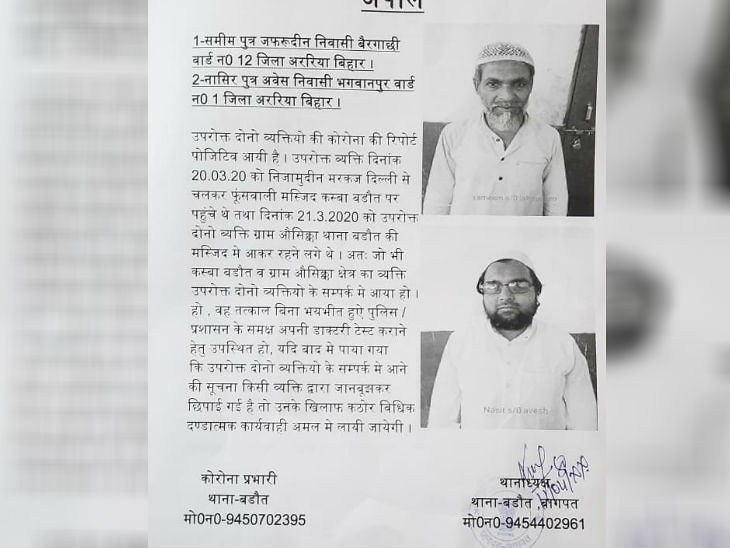 अपील
1-समीम पुत्र जफरूदीन निवासी बैरगाछी
वार्ड न0 12 जिला अररिया बिहार ।
2-नासिर पुत्र अवेस निवासी भगवानपुर वार्ड
न0 1 जिला अररिया बिहार ।
उपरोक्त दोनो व्यक्तियो की कोरोना की रिपोर्ट
पोजिटिव आयी है । उपरोक्त व्यक्ति दिनांक
20.03.20 को निजामुदीन मरकज दिल्ली से
चलकर फूंसवाली मस्जिद कस्बा बडौत पर
पहुंचे थे तथा दिनांक 21.3.2020 को उपरोक्त
दोनो व्यक्ति ग्राम औसिक्का थाना बडौत की
मस्जिद मे आकर रहने लगे थे । अतः जो भी
कस्बा बडौत व ग्राम औसिक्का क्षेत्र का व्यक्ति
उपरोक्त दोनो व्यक्तियो के सम्पर्क मे आया हो ।
हो , वह तत्काल बिना भयभीत हुऐ पुलिस /
प्रशासन के समक्ष अपनी डाक्टरी टेस्ट कराने
हेतु उपस्थित हो, यदि बाद मे पाया गया
कि उपरोक्त दोनो व्यक्तियो के सम्पर्क मे आने
की सूचना किसी व्यक्ति द्वारा जानबूझकर
छिपाई गई है तो उनके खिलाफ कठोर विधिक
दण्डात्मक कार्यवाही अमल मे लायी जायेगी ।
sameem s/o
Nasir s/o avesh
कोरोना प्रभारी
थाना-बडौत
मो0न0-9450702395
थानाध्यक्ष
थाना-बडौत ,बागपत
मो0न0-9454402961